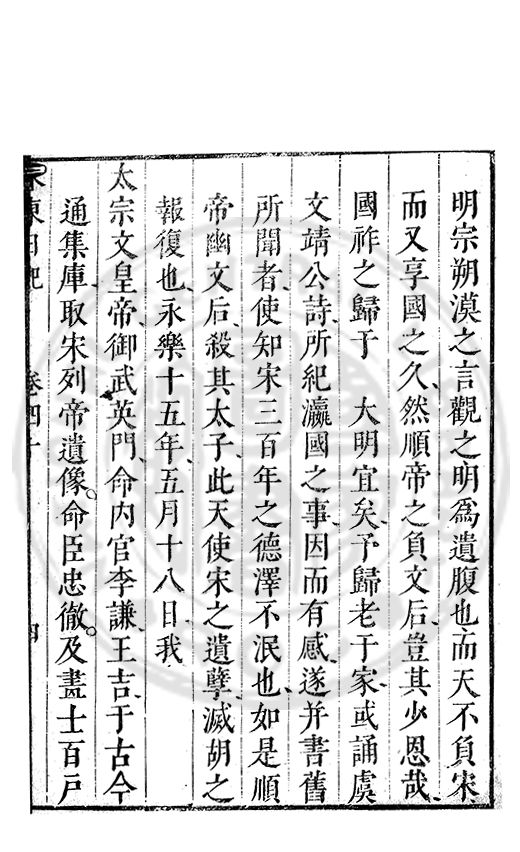 明宗朔漠之言觀之明爲遺腹也而天不負宋
而又享國之久然順帝之負文后豈其少恩哉
國祚之歸于　大明宜矣予歸老于家或誦虞
文靖公詩所紀瀛國之事因而有感遂并書舊
所聞者使知宋三百年之德澤不泯也如是順
帝幽文后殺其太子此天使宋之遺孽滅胡之
報復也永樂十五年五月十八日我
太宗文皇帝御武英門命內官李謙王吉于古今
通集庫取宋列帝遺像命臣忠徹及畫士百戸
水東日記　卷四十　四